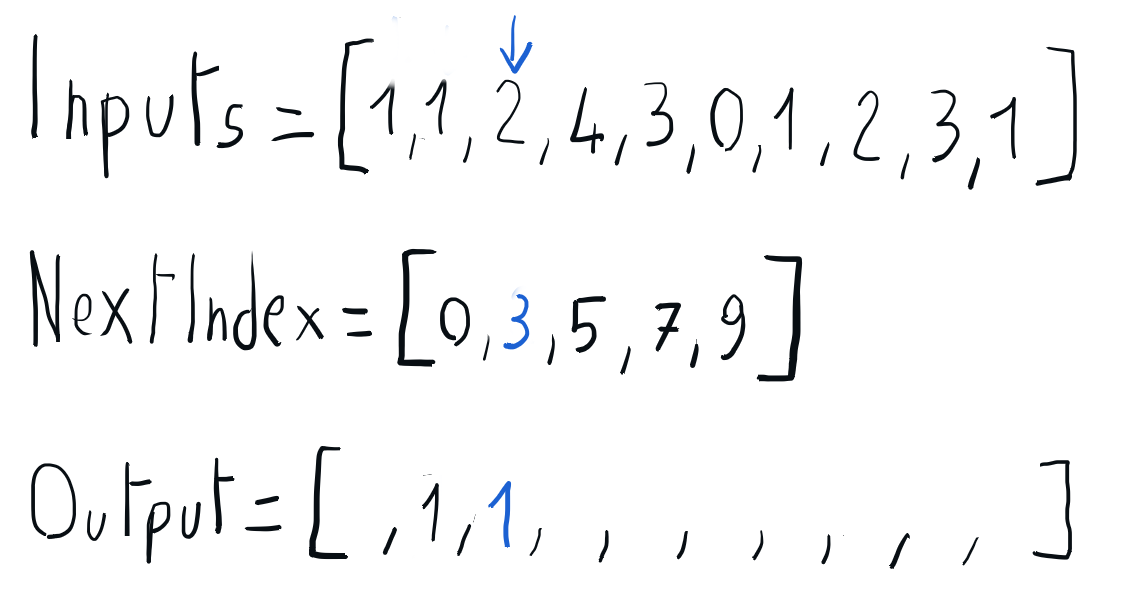 ↓
Inputs = [1,1,2,4,3,0,1,2,3,1]
NextIndex = [0,3,5,7,9]
Output = [ ,1,1, , , , , , , ]